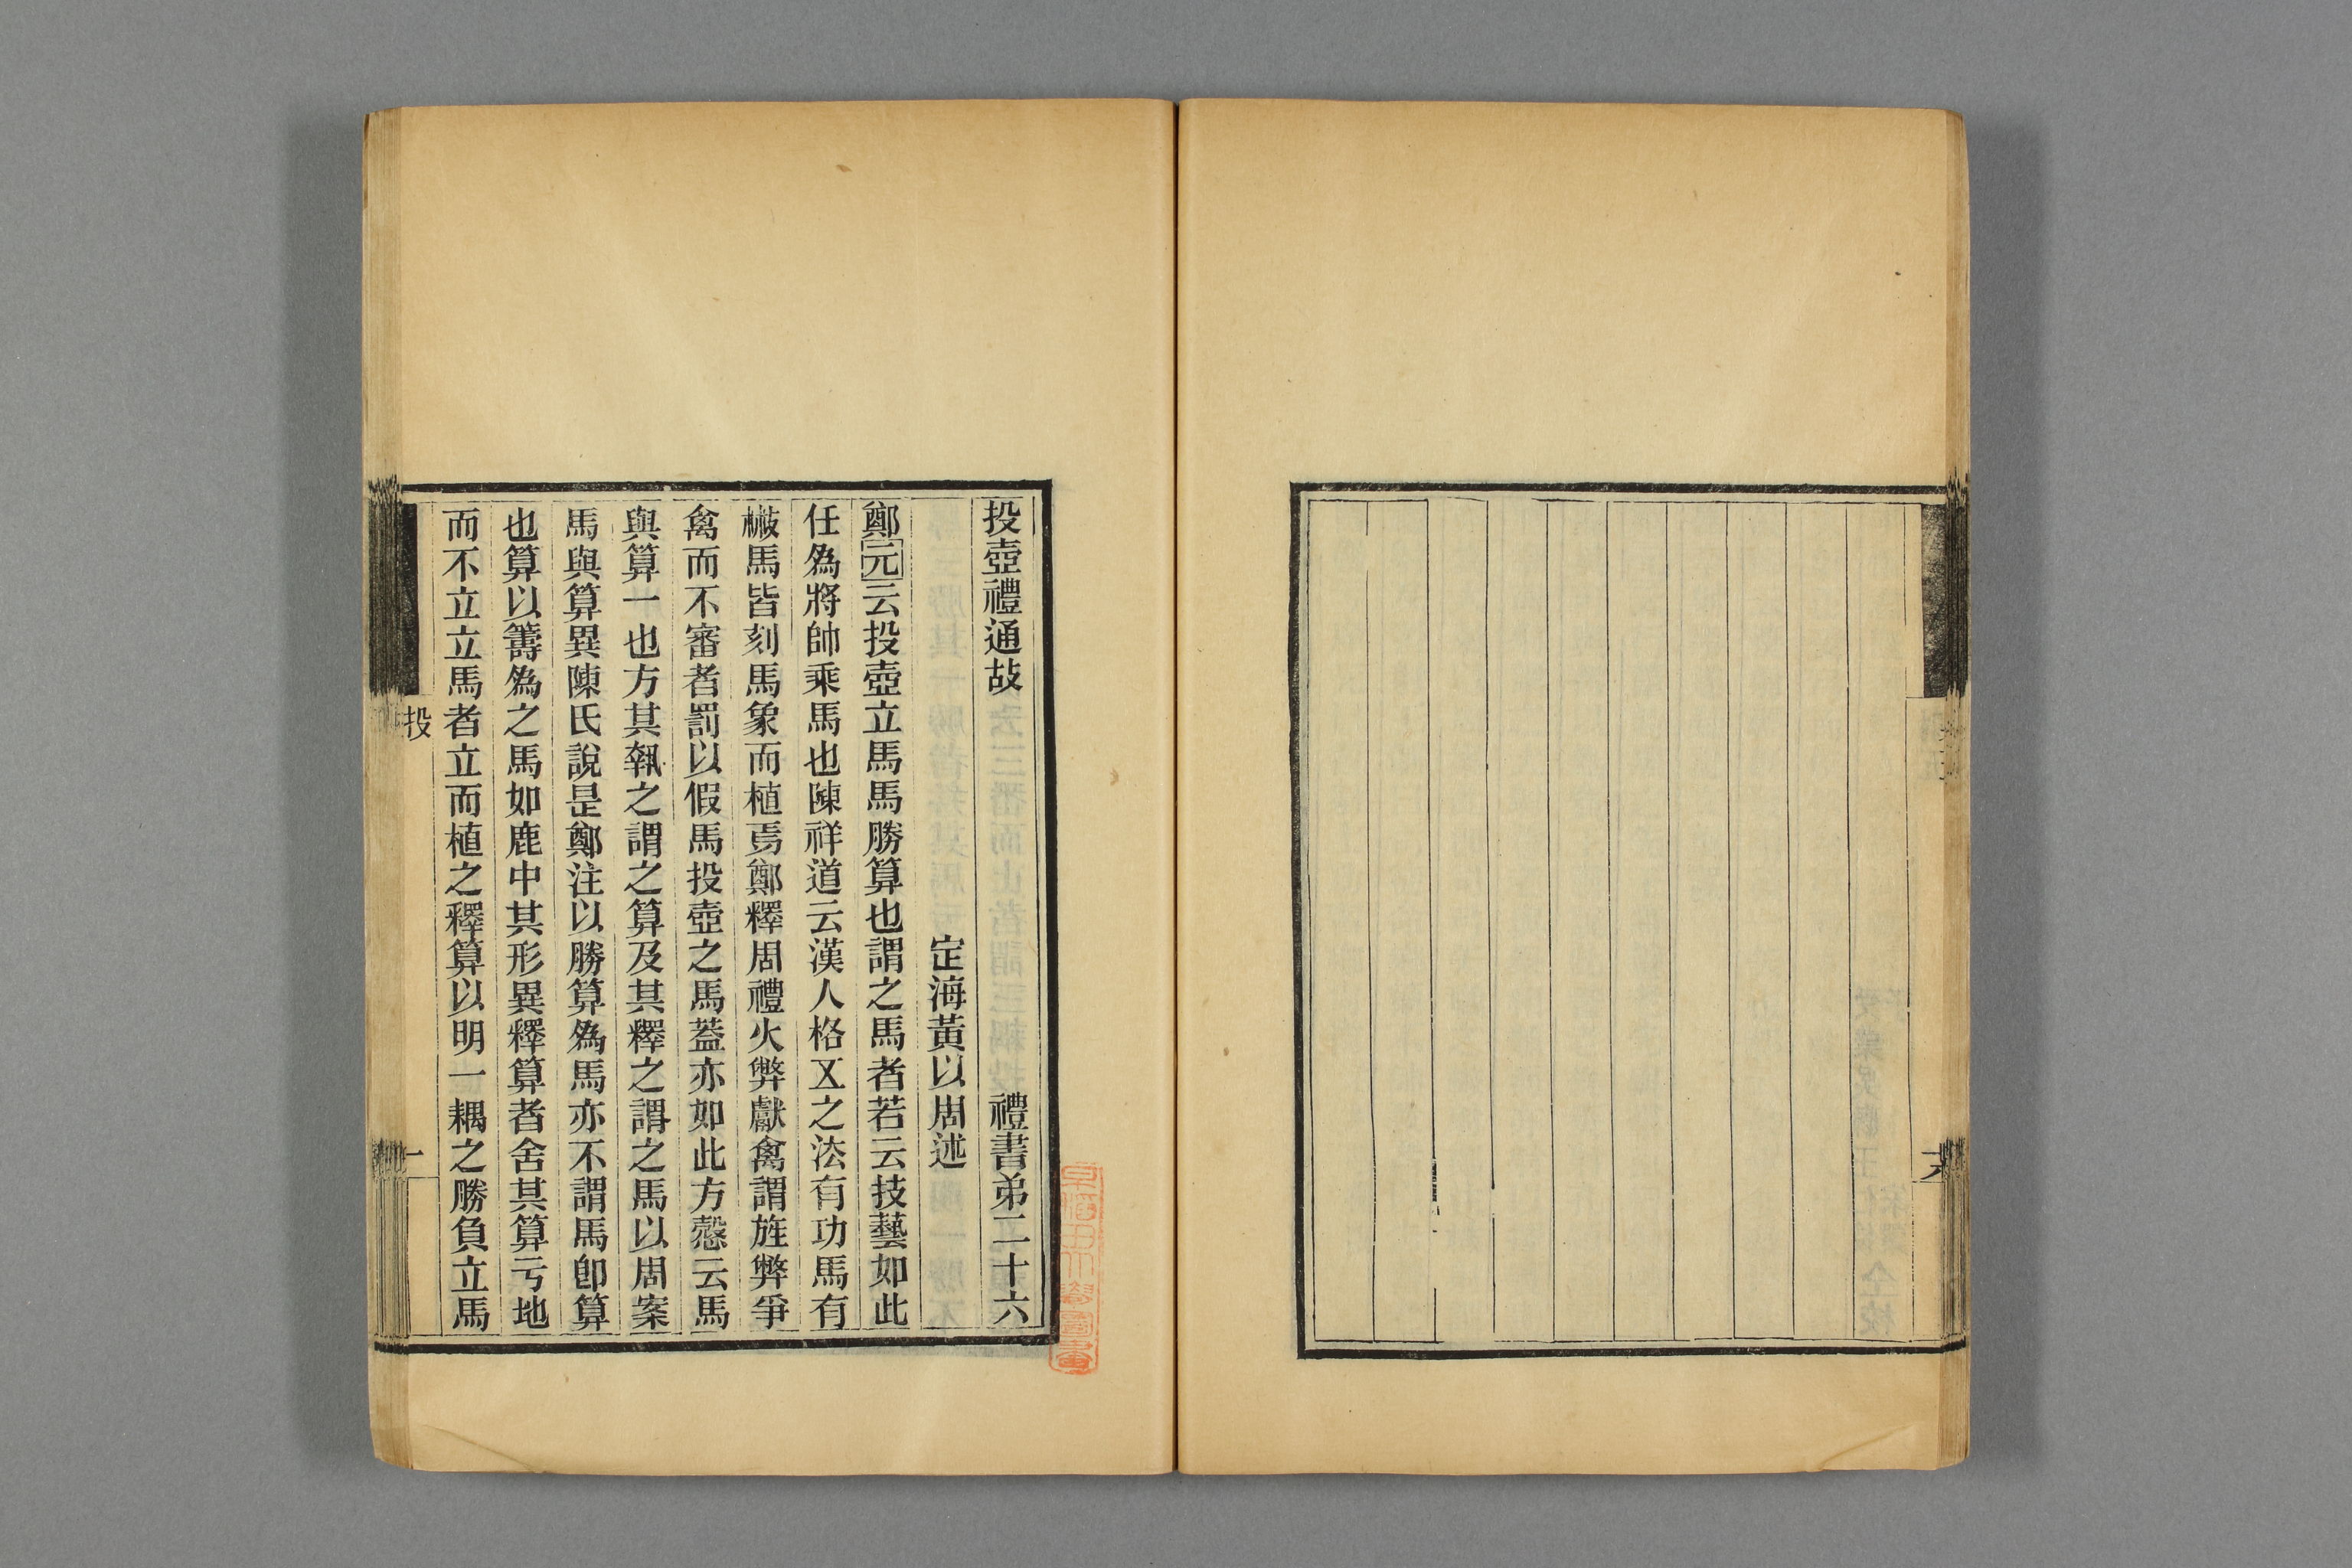 投壺禮通故
禮書弟二十六
定海黃以周述
鄭元云投壺立馬馬勝算也謂之馬者若云技藝如此
任爲將帥乘馬也陳祥道云漢人格五之法有功馬有
馬皆刻馬象而植焉鄭釋周禮火弊獻禽謂旌弊爭
禽而不審者罰以假馬投壺之馬葢亦如此方愨云馬
與算一也方其執之謂之算及其釋之謂之馬以周案
馬與算異陳氏說是鄭注以勝算爲馬亦不謂馬卽算
也算以籌爲之馬如鹿中其形異釋算者舍其算亏地
而不立立馬者立而植之釋算以明一耦之勝負立馬
投
一
早稻田大學圖書